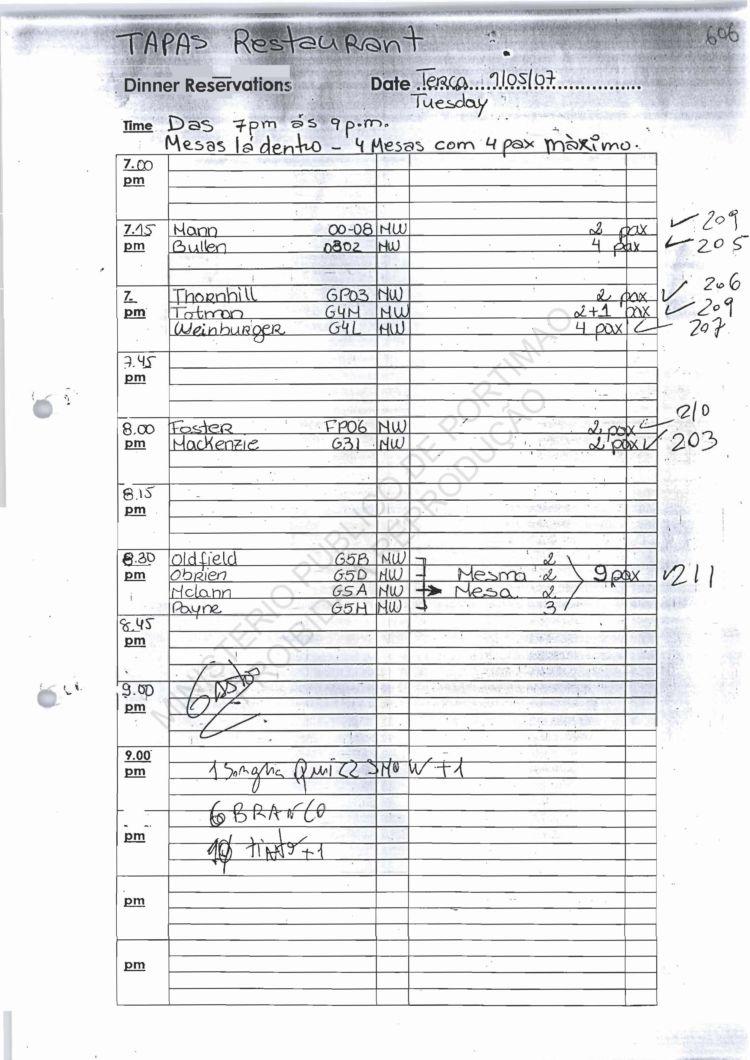 606
TAPAS Restaurant
Dinner Reservations Date Terça 1/05/07
Tuesday
Time Das 7pm ás 9p.m.
Mesas lá dentro - 4 Mesas com 4 pax màximo.
7.00 pm
7.15 Mann 00-08 MW 2 pax ✓ 209
pm Bullen 0802 MW 4 pax ✓ 205
7. Thornhill GP03 MW 2 pax ✓ 206
pm Totman G4M MW 2+1 pax ✓ 209
Weinburger G4L MW 4 pax ✓ 207
7.45 pm
8.00 Foster FP06 MW 2 pax ✓ 210
pm Mackenzie G31 MW 2 pax ✓ 203
8.15 pm
8.30 Oldfield G5B MW 2
pm Obrien G5D MW Mesma 2 9 pax ✓ 211
Mclann G5A MW → Mesa. 2
Payne G5H MW 3
8.45 pm
9.00 pm
9.00
pm
6 BRANCO
pm tinto +1
pm
pm
MINISTERIO PUBLICO DE PORTIMAO
PROIBIDA A REPRODUÇÃO